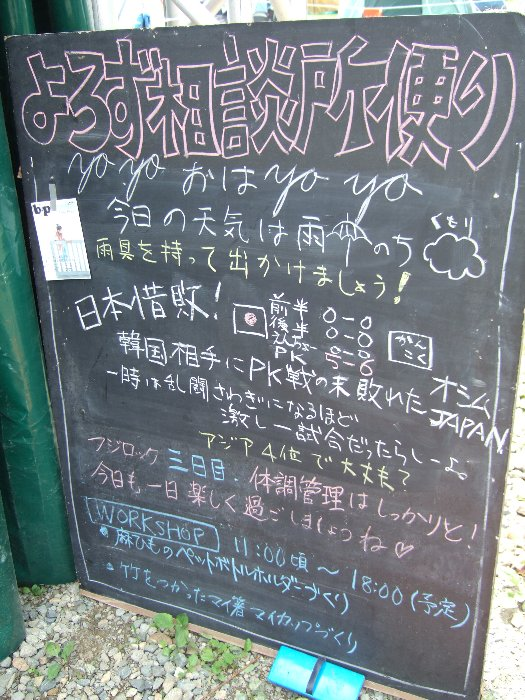 よろず相談所便り
yo yo おは yo yo
今日の天気は雨のち くもり
雨具を持って出かけましょう!
日本惜敗!
前半 0-0
後半 0-0
えんちょー 0-0
PK 5-6
かんこく
韓国相手にPK戦の末敗れたオシムJAPAN
一時は乱闘さわぎになるほど
激しー試合だったらしーよ
アジア4位で大丈夫?
フジロック三日目・体調管理はしっかりと!
今日も一日楽しく過ごしましょうね♡
WORKSHOP 11:00頃〜18:00(予定)
・麻ひものペットボトルホルダーづくり
・竹をつかったマイ箸マイカップづくり
bp